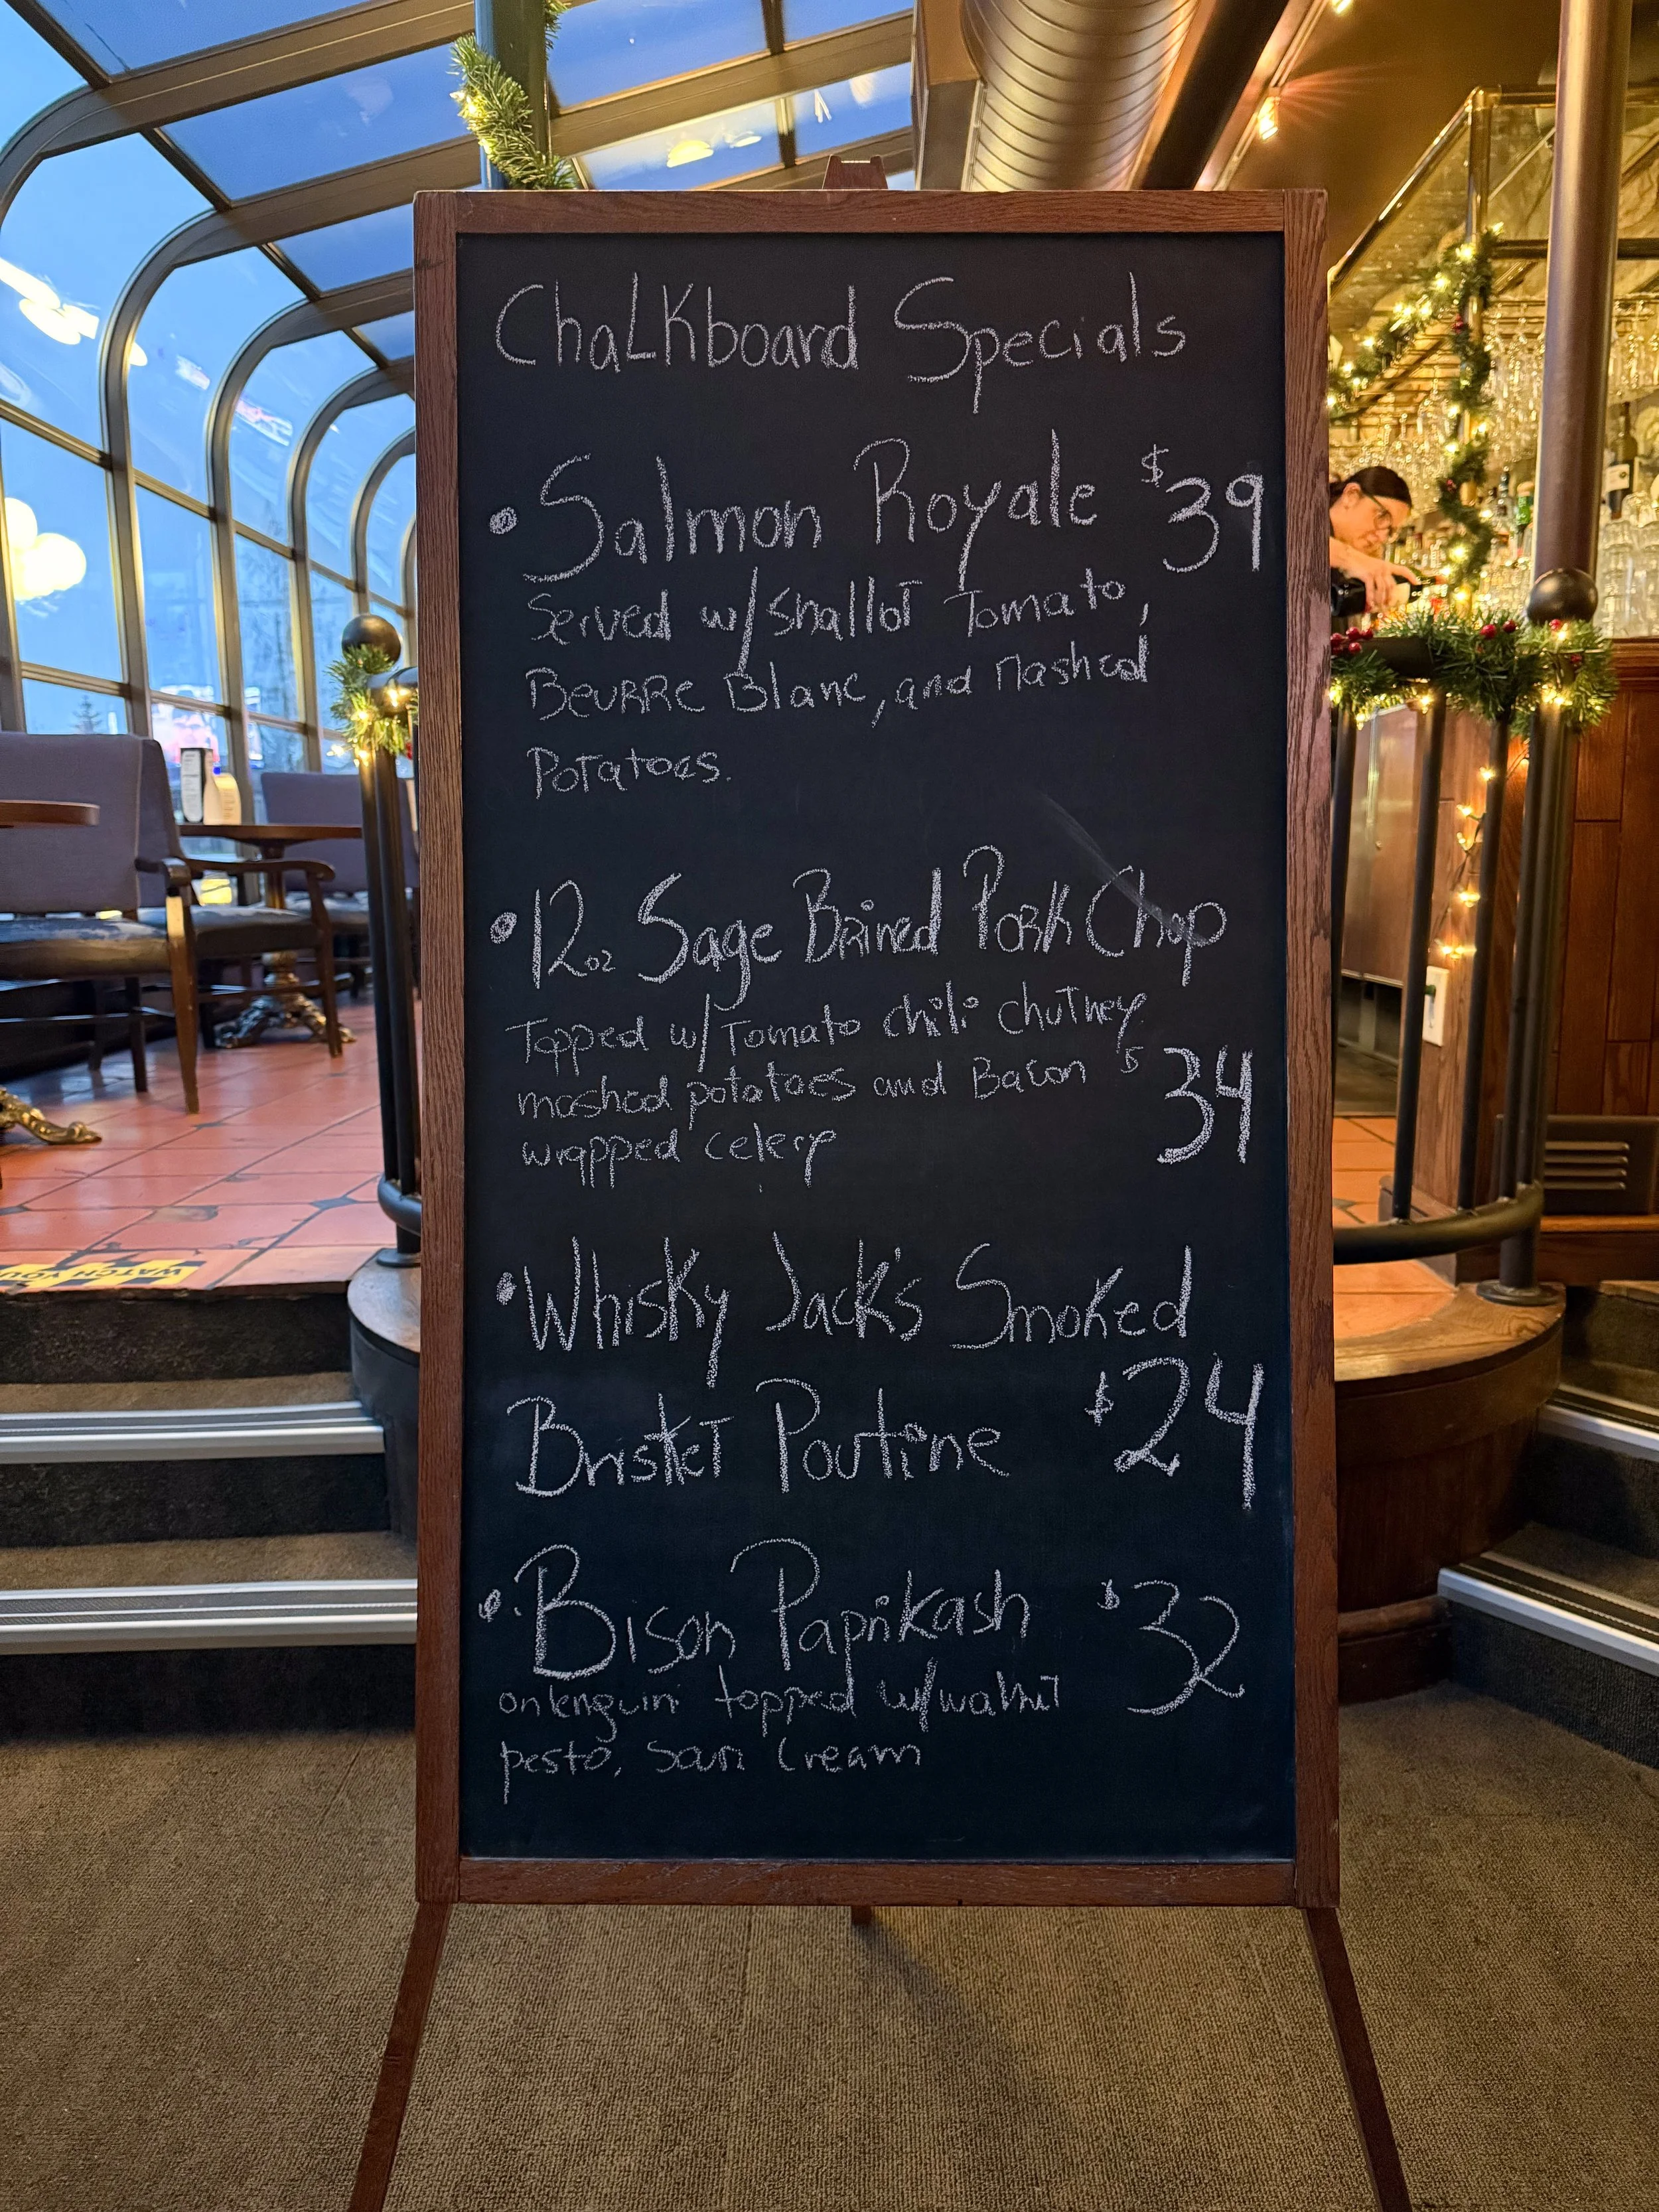 Chalkboard Specials
• Salmon Royale $39
Served w/shallot Tomato,
Beurre Blanc, and Mashed
Potatoes.
• 12oz Sage Brined Pork Chop
Topped w/Tomato chili chutney
mashed potatoes and Bacon $34
wrapped celery
• Whisky Jack's Smoked
Brisket Poutine $24
• Bison Paprikash $32
on lenguin topped w/walnut
pesto, Sour Cream
WATCH YOU